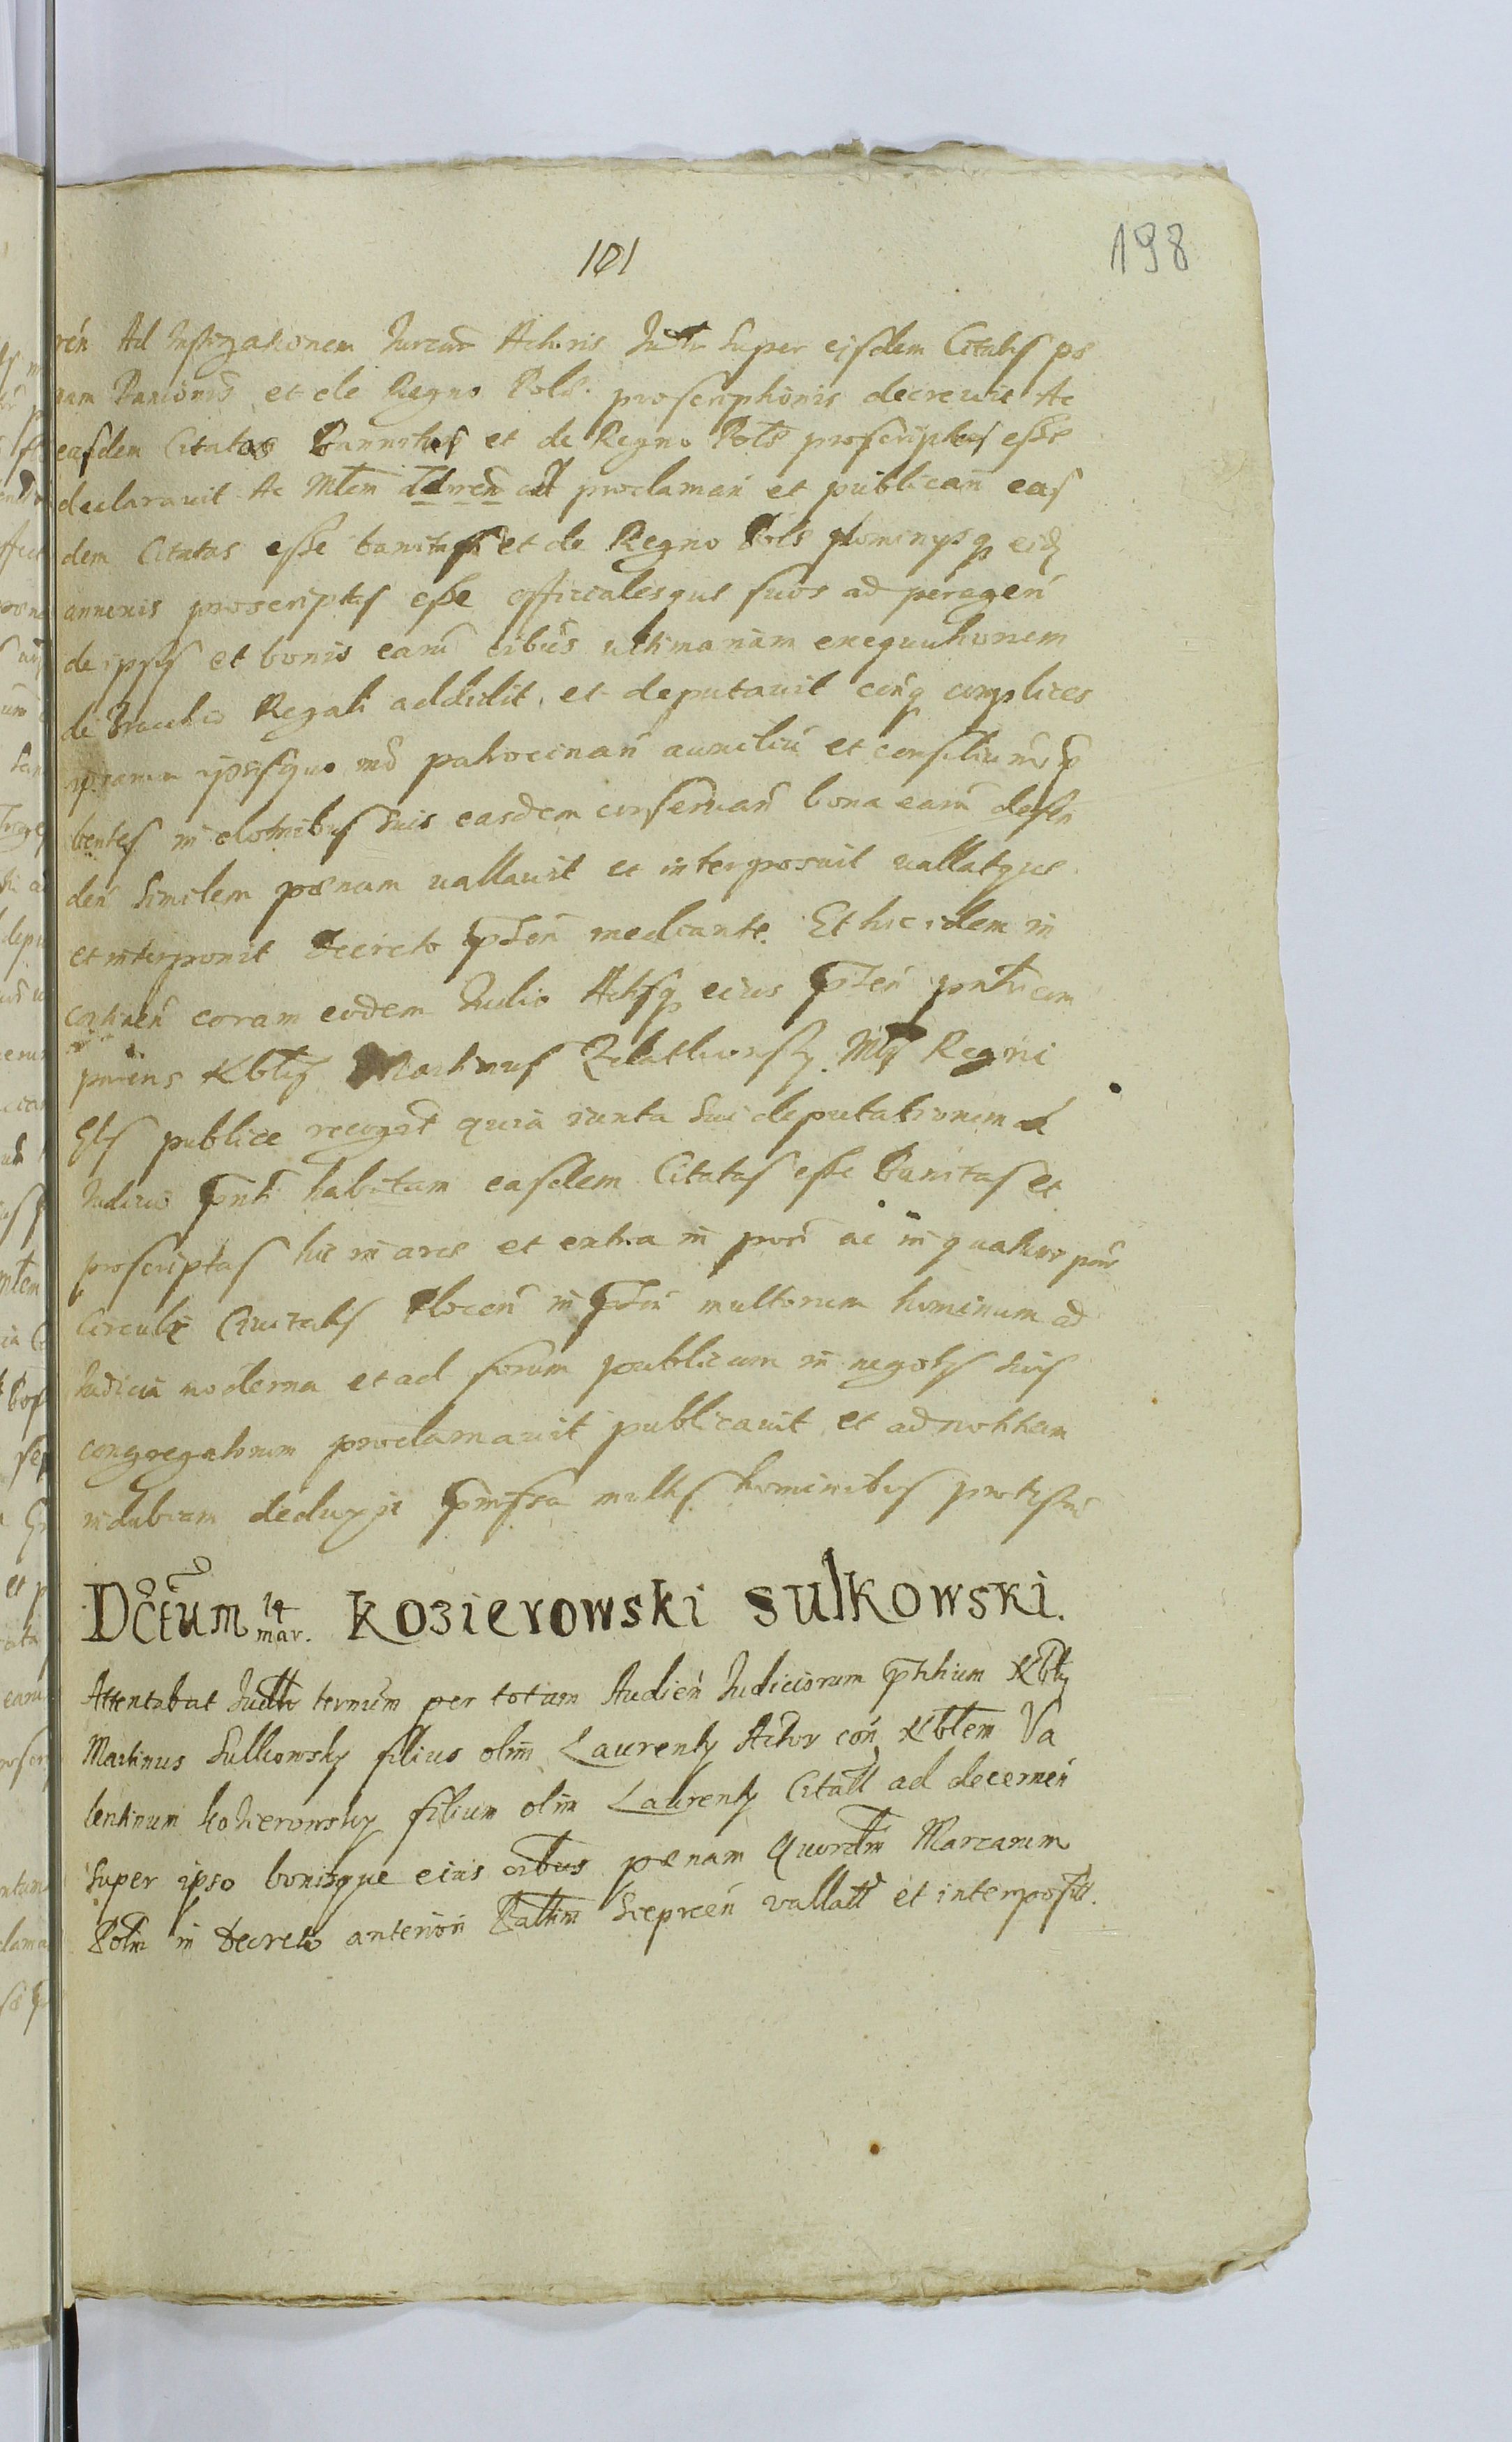 101
198
ren Ad Instigationem Actoris super eisdem Citatis pæ
nam Banionis et de Regno Polo. proscriptionis decrevit Ac
easdem Citatas Bannitas et de Regno Polo proscriptas esse
declaravit Ac Mlem proclaman et publican eas
dem Citatas esse banitas et de Regno Pols Dominysq eid
annexis proscriptas esse officialesque suos ad peragen
de ipsis et bonis earu oibus ultimariam exequutionem
de Brachio Regali addidit et deputavit eorq complices
ipsarum ipsisque patrocinan auxiliu et consilium
bentes in domibus suis easdem conservan bona earu defen
den similem pænam vallavit et interposuit vallatque
et interponit decreto pnten mediante. Et hic idem in
continen coram eodem Iudio Actisq eius pnten
Martinus Mly Regni
Glis publice recogt quia iuxta sui deputationem a
Iudicio pnti habitam easdem Citatas esse Banitas et
proscriptas hic in arce et extra in ac in quatuor
Circuli Civitatis Plocen in pnten multorum hominum ad
Iudicia moderna et ad forum publicum in negotys suis
congregatorum proclamavit publicavit et ad notitiam
indubiam deduxit pmissa multis hominibus
Dctum 14 mar. Kozierowski Sulkowski.
Attentabat terminum per totam Audien Iudiciorum pntium Nblis
Martinus Sulkowsky filius olim Laurenty Actor con Nblem Va
lentinum Kozierowsky filium olim Laurenty Citatt ad decernen
super ipso bonisque eius oibus pænam Marcarum
Polm in decreto anteriori vallatt et interposit.